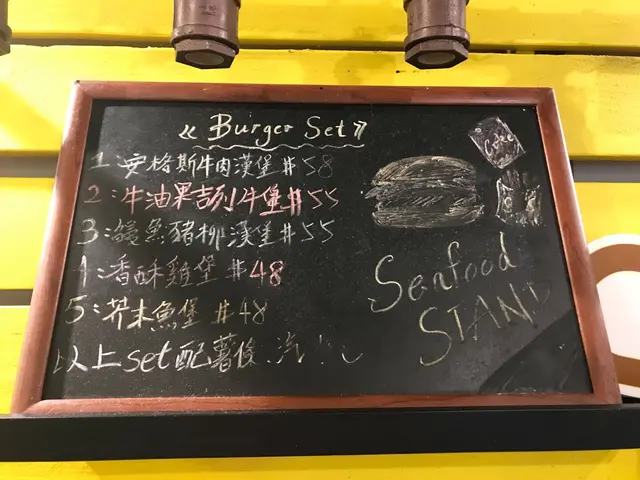 《Burger Set》
1:安格斯牛肉漢堡 #58
2:牛油果吉列牛堡 #55
3:鰻魚豬柳漢堡 #55
4:香酥雞堡 #48
5:芥末魚堡 #48
以上set配薯條、汽
Coke
Seafood
STAND